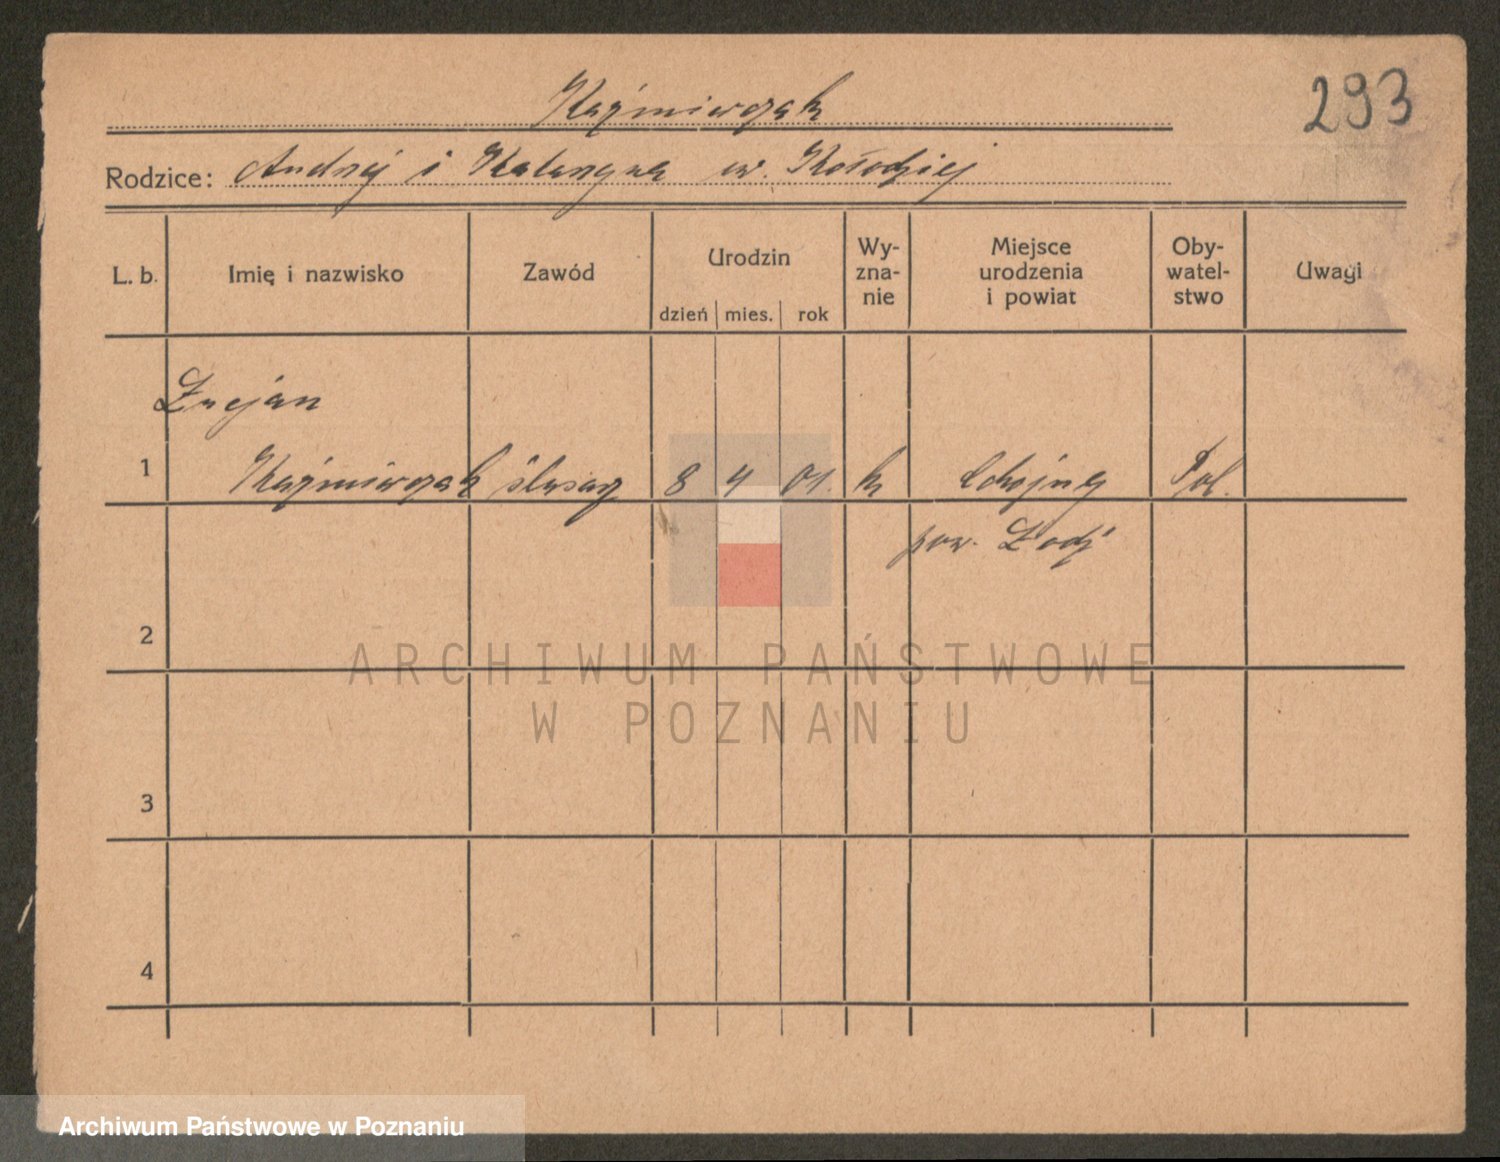 Kaźmierczak
293
Rodzice: Andrzej i Katarzyna ur. Kołodziej
L. b. Imię i nazwisko Zawód Urodzin dzień mies. rok Wy-zna-nie Miejsce urodzenia i powiat Oby-watel-stwo Uwagi
Łucjan
1 Kaźmierczak ślusarz 8 4 01. k Chojny Pol.
pow. Łódź
2
ARCHIWUM PAŃSTWOWE
W POZNANIU
3
4
Archiwum Państwowe w Poznaniu